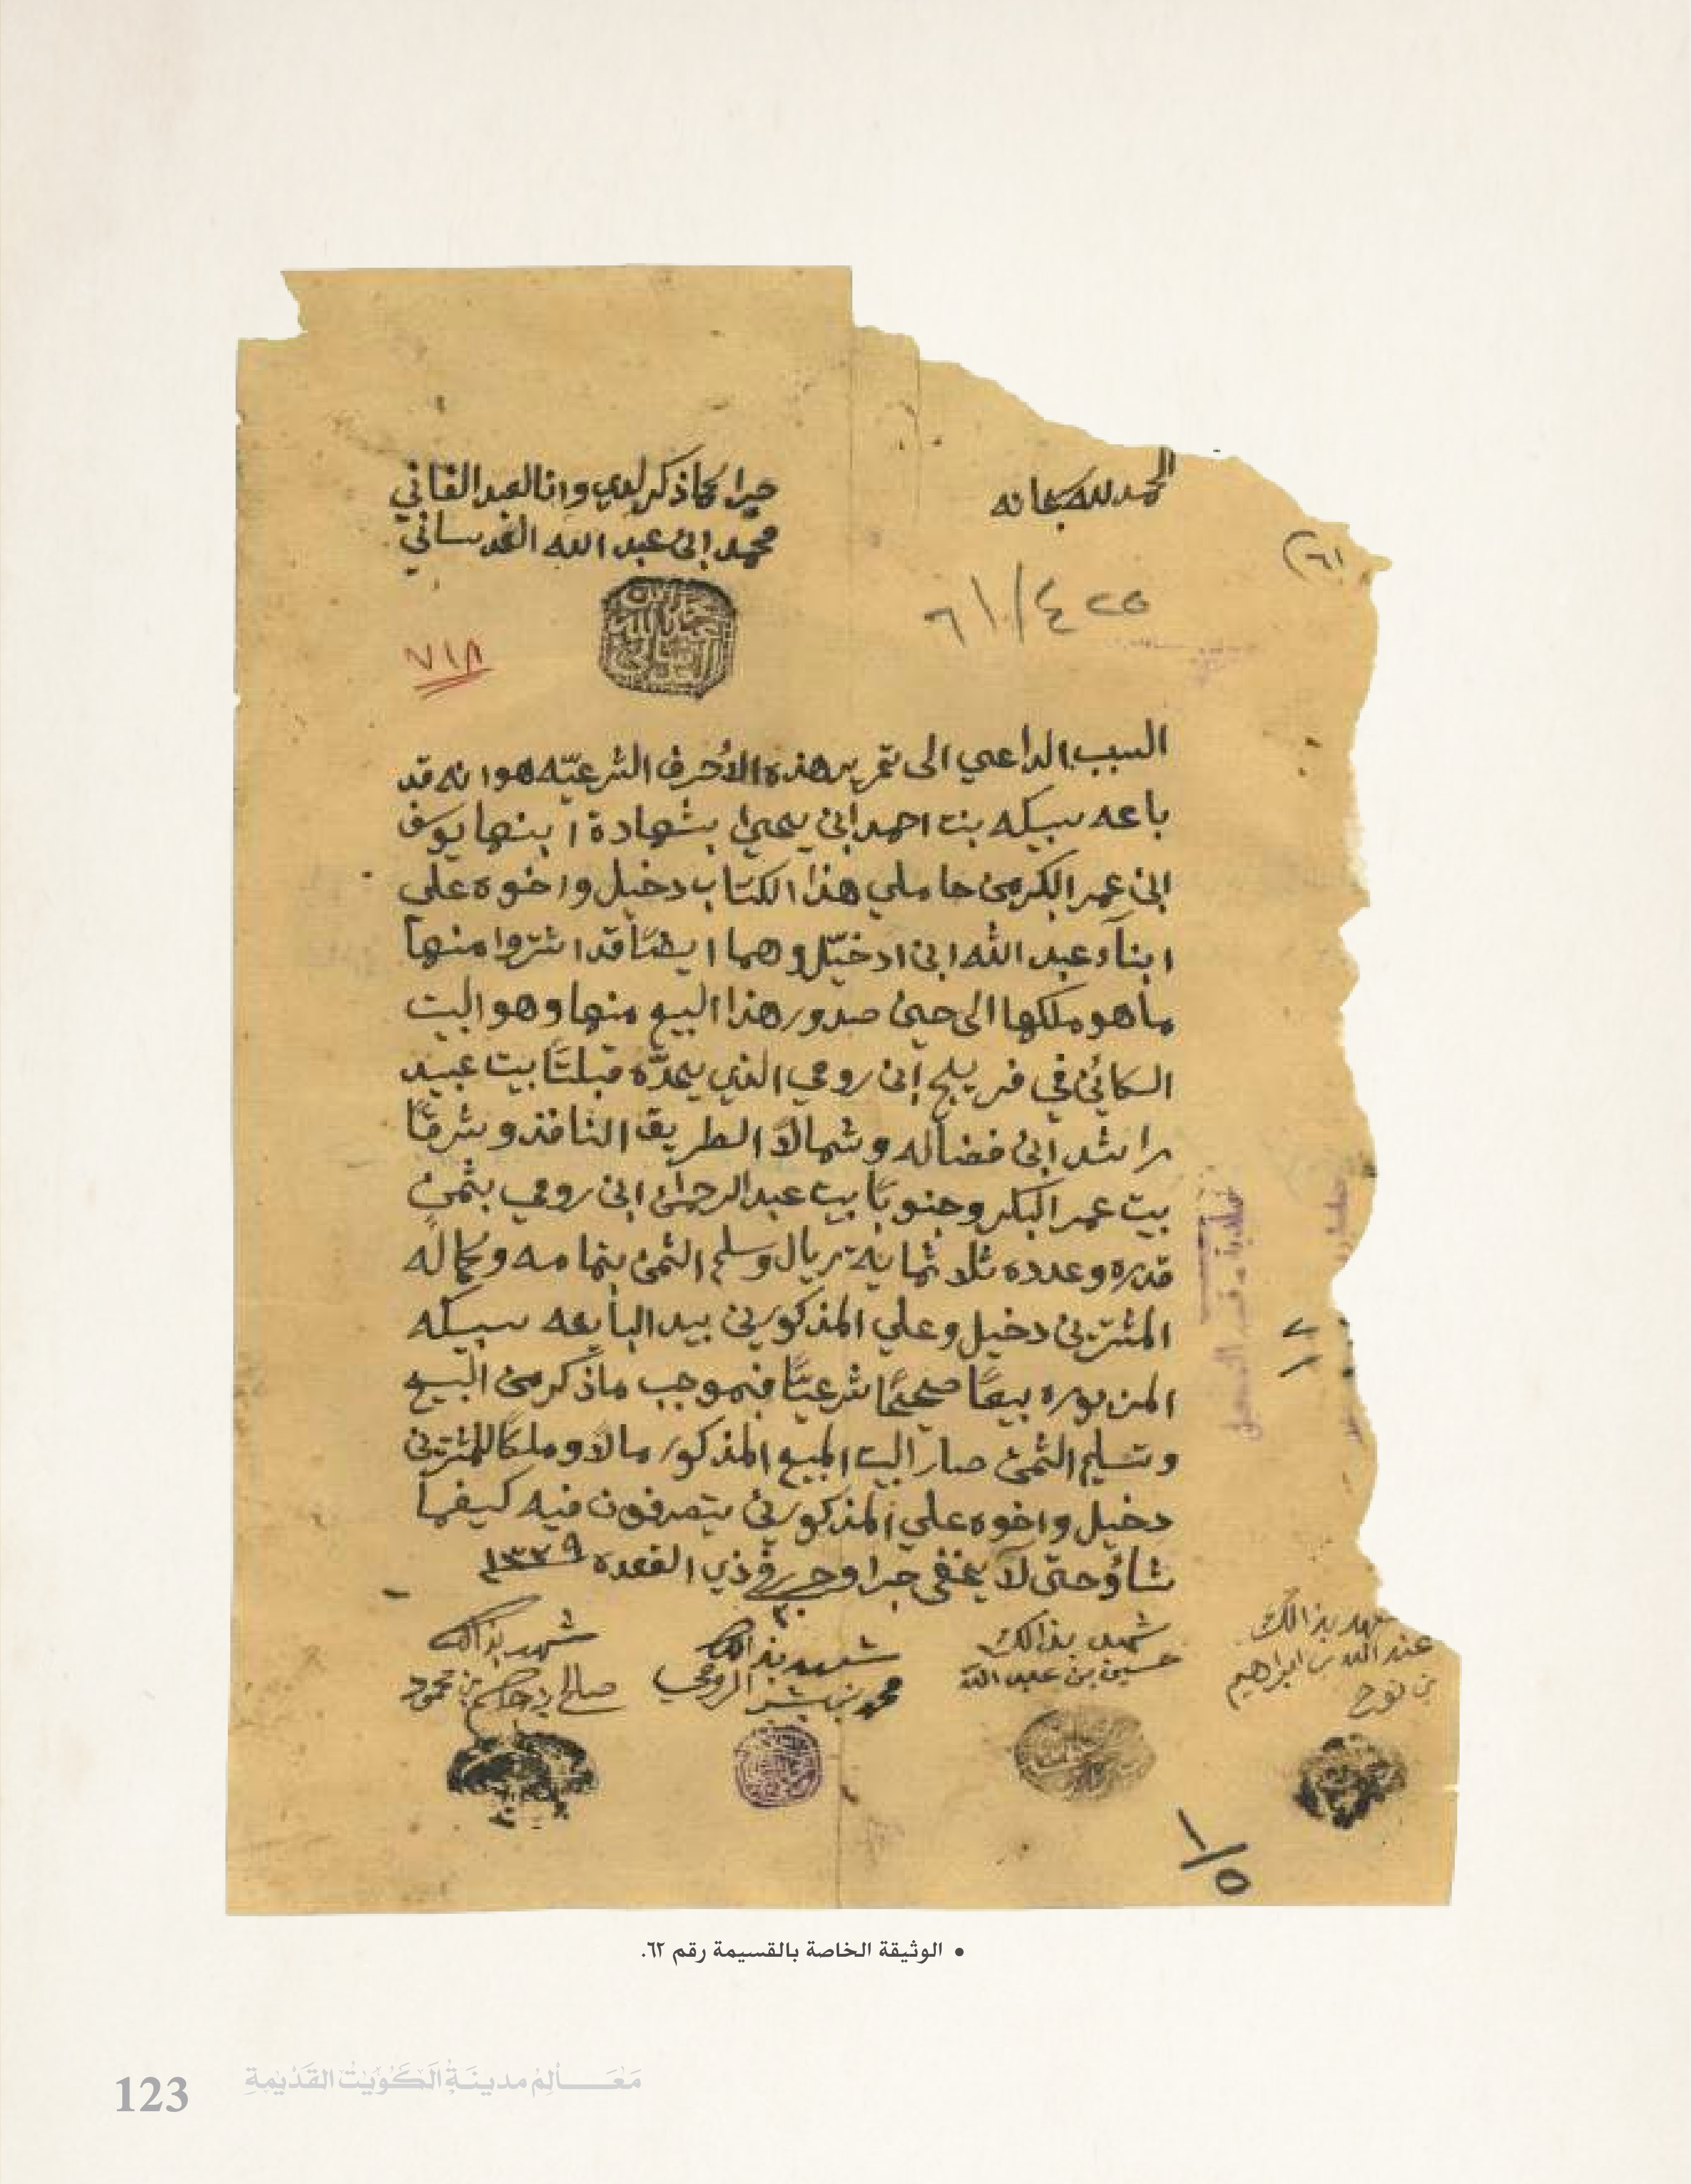 الحمد لله سبحانه
جرا كما ذكر لدي وانا العبد الفاني
محمد ابن عبد الله العدساني
(٦١
٦١/٤٢٥
٧١٨
السبب الداعي الى تحرير هذه الأحرف الشرعيّه هو انه قد
باعه سبيكه بنت احمد ابن يحيى بشهادة ابنها يوسف
ابن عمر البكر من حاملي هذا الكتاب دخيل واخوه علي
ابنآء عبد الله ابن ادخيّل وهما ايضًا قد اشتروا منها
ما هو ملكها الى حين صدور هذا البيع منها وهو البيت
الكائن في فريلج ابن رومي الذي يحدّه قبلتًا بيت عبيد
راشد ابن فضاله وشمالاً الطريق النافذ وشرقًا
بيت عمر البكر وجنوبًا بيت عبد الرحمن ابن رومي بثمنٍ
قدره وعدده ثلاثماية ريال وسلم الثمن بتمامه وكماله
المشترين دخيل وعلي المذكورين بيد البايعه سبيكه
المزبوره بيعًا صحيحًا شرعيًّا فبموجب ما ذكر من البيع
وتسليم الثمن صار البيت المبيع المذكور مالاً وملكًا للمشترين
دخيل واخوه علي المذكورين يتصرفون فيه كيفما
شاؤ حتى لا يخفى جرا وحرر في ذي القعده ١٣٢٩
شهد بذالك
عبد الله بن ابراهيم
بن نوح
شهد بذالك
حسين بن عبد الله
شهد بذالك
محمد بن بشر الرومي
شهد بذالك
صالح بن محمود
١/٥
• الوثيقة الخاصة بالقسيمة رقم ٦٢.
123 مَعَالِمْ مدينَةِ الكُوَيْتْ القَدْيمةِ